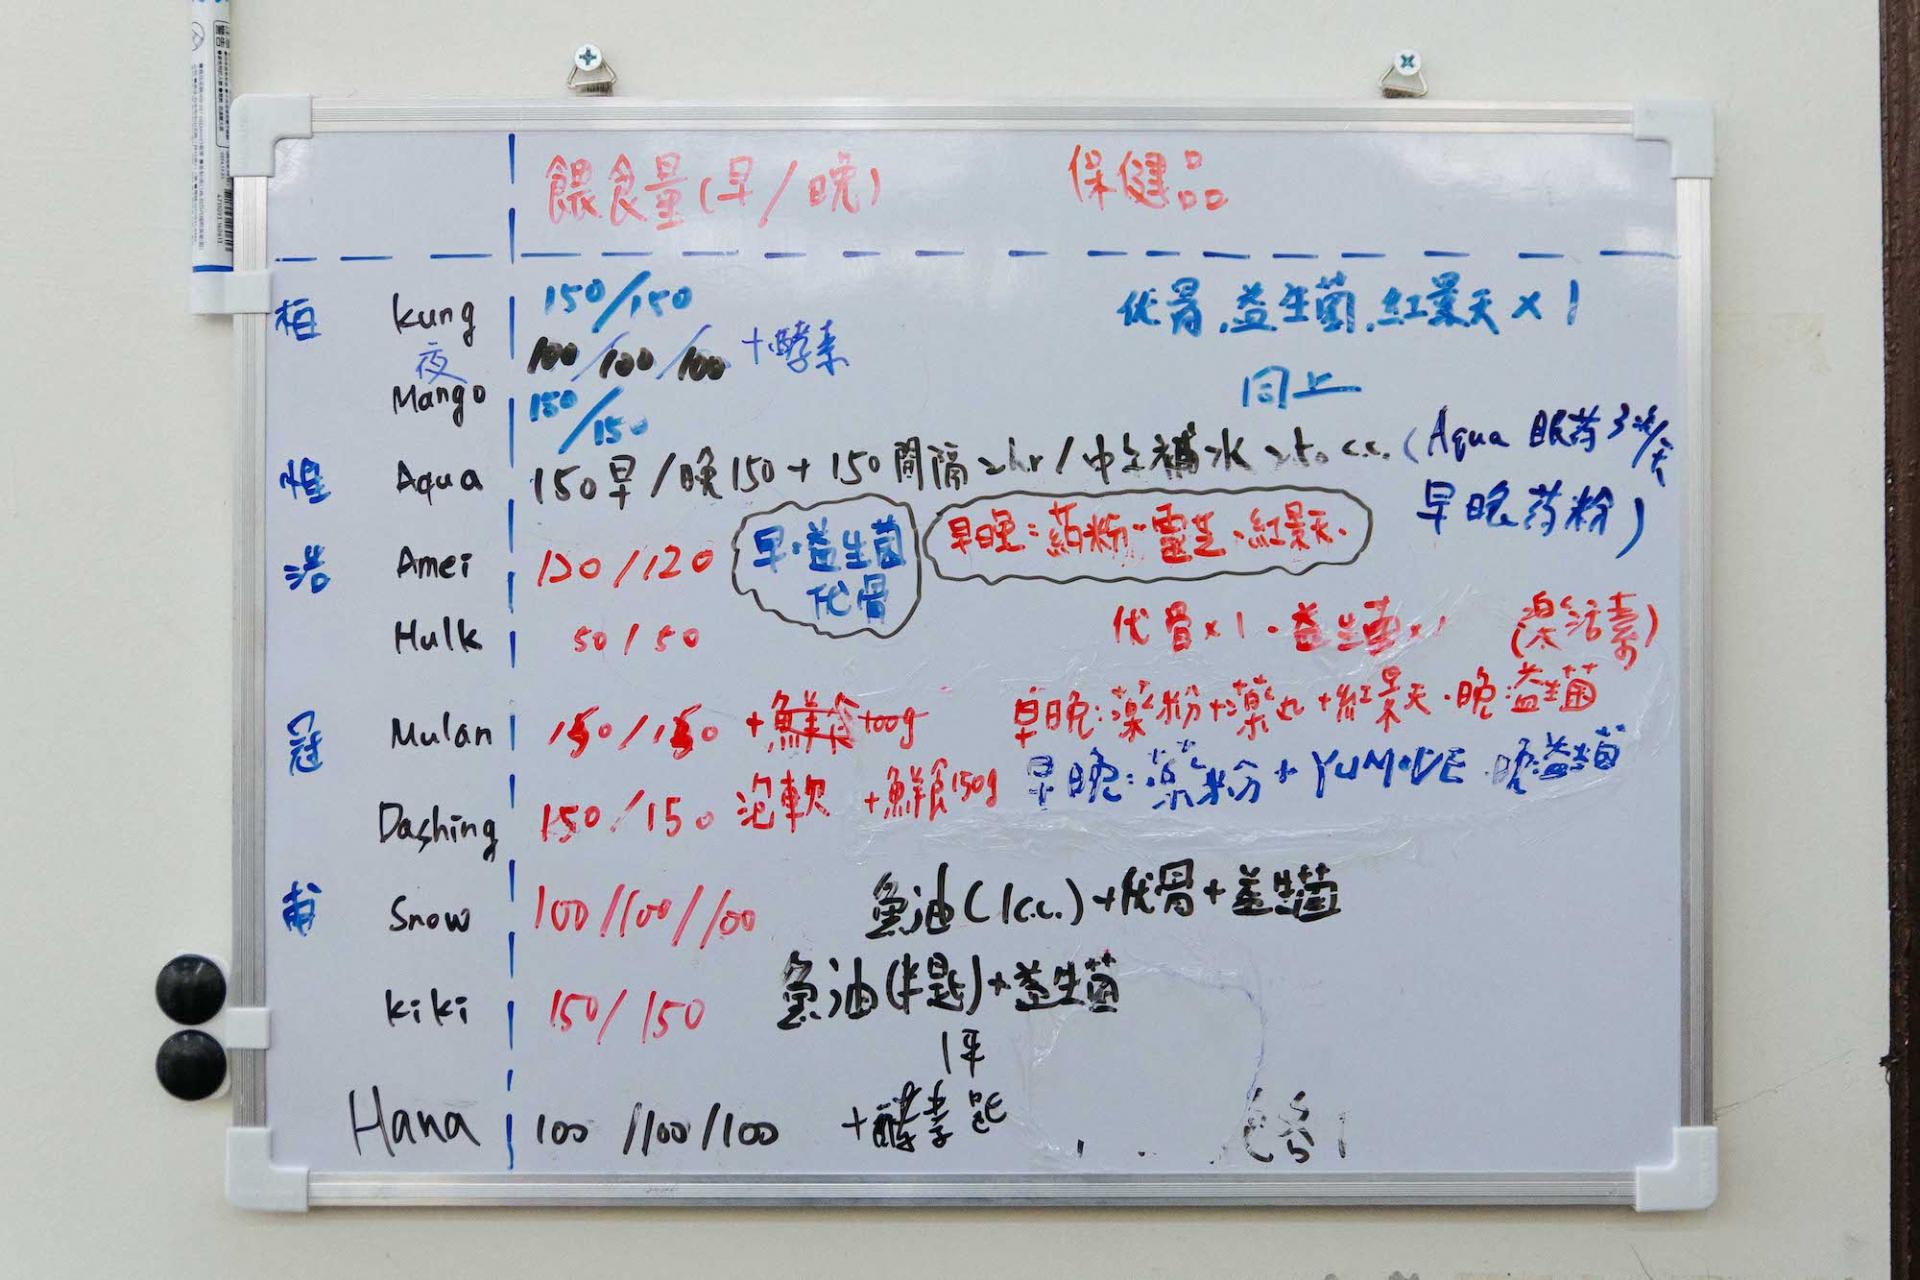 餵食量(早/晚) 保健品
柏 kung 150/150 优骨.益生菌.紅景天×1
夜 100/100/100 +酵素
Mango 150/150 同上
惟 Aqua 150早/晚150+150間隔2hr/中午補水250c.c. (Aqua 眼药3次/天
早晚药粉)
浩 Amei 120/120 早.益生菌 早晚:葯粉.靈芝.紅景天.
优骨
Hulk 50/50 优骨×1.益生菌×1 (樂活素)
冠 Mulan 150/150 +鮮食100g 早晚:藥粉+藥丸+紅景天.晚益生菌
Dashing 150/150 泡軟 +鮮食150g 早晚:藥粉+YUMOVE.晚益生菌
甫 Snow 100/100/100 魚油(1c.c.)+优骨+益生菌
kiki 150/150 魚油(半匙)+益生菌
1平
Hana 100/100/100 +酵素匙